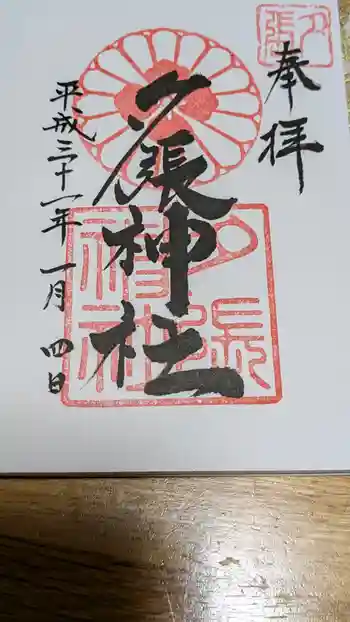 奉拝
夕張
夕張神社
夕張神社
平成三十一年 一月 四日